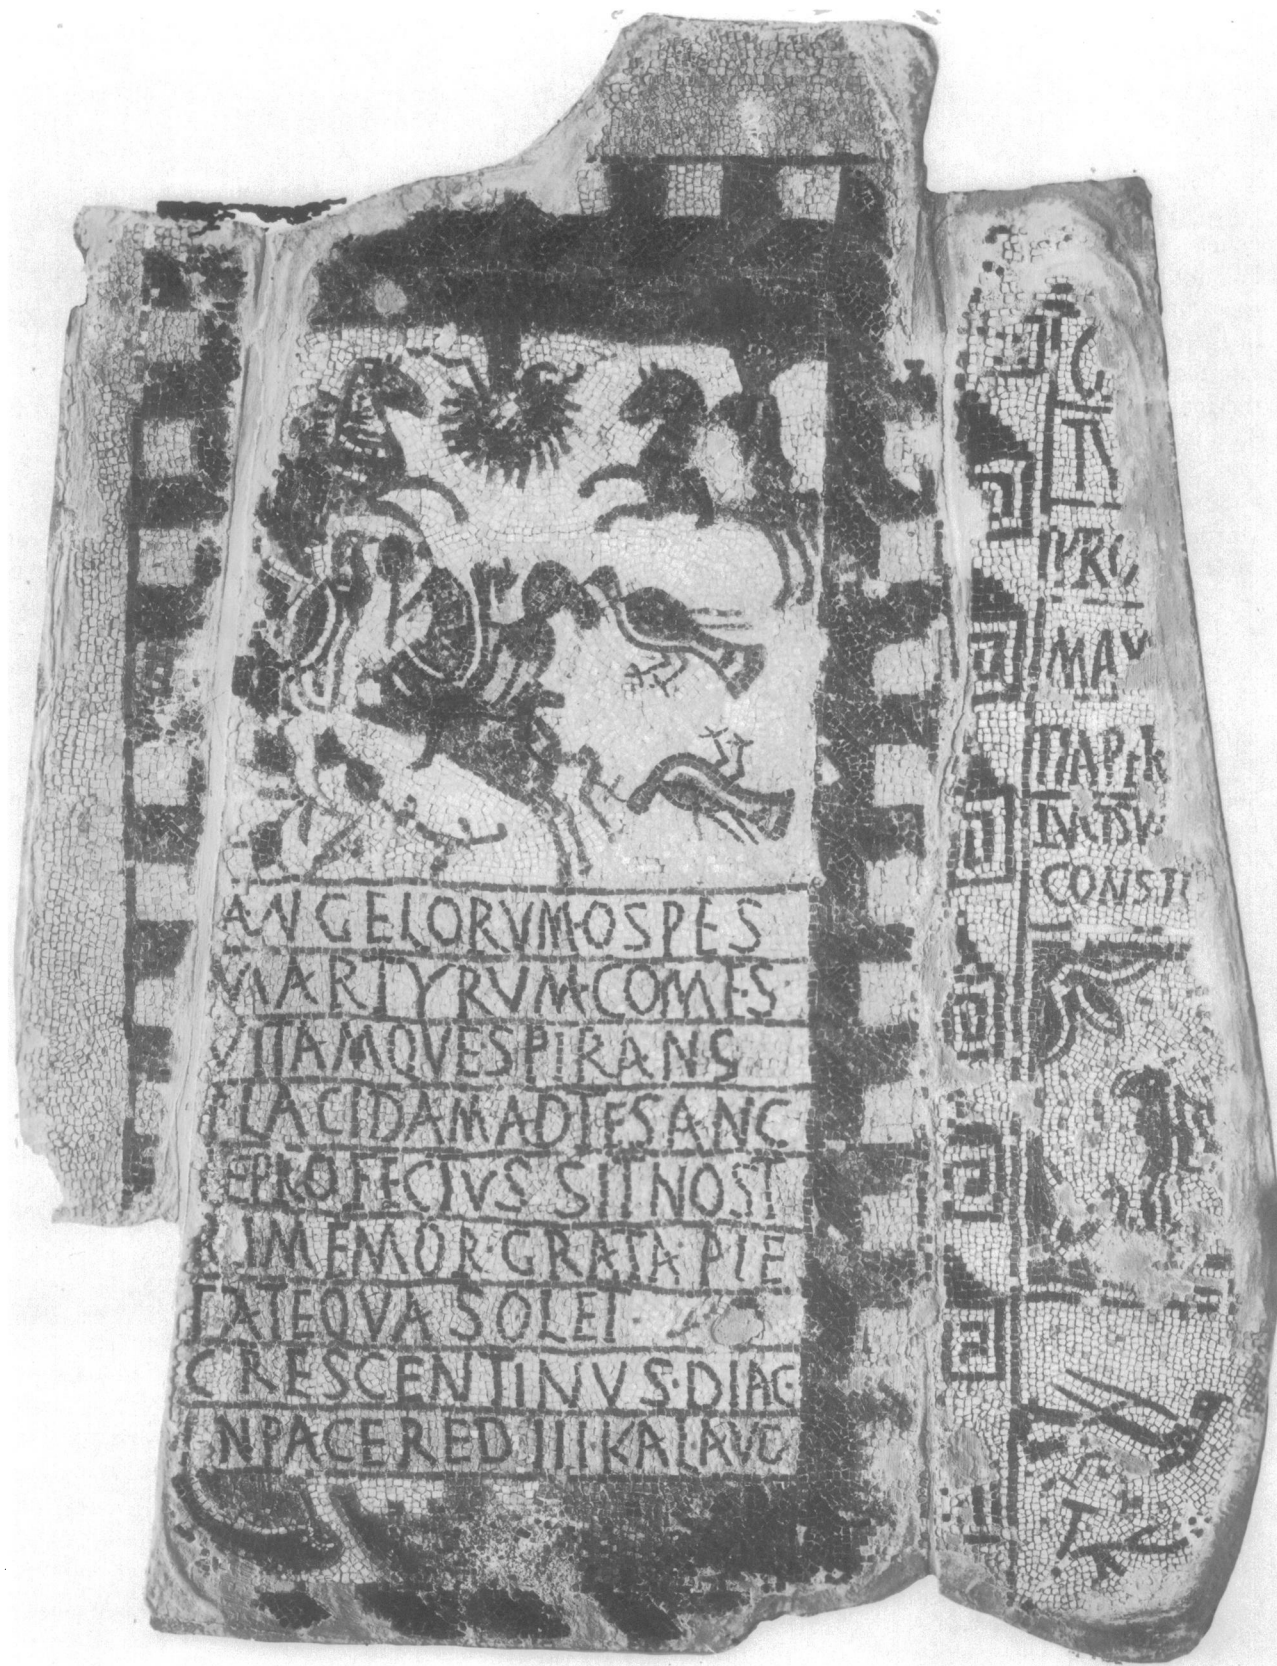 ANGELORVM·OSPES
MARTYRVM·COMES
VITAMQVESPIRANS
PLACIDAMADTESANC
TEPROFECTVSSITNOST
RIMEMOR·GRATA·PIE
TATEQVASOLET·
CRESCENTINVS·DIAC·
INPACERED III·KAL·AVG
MAV
CONSTI